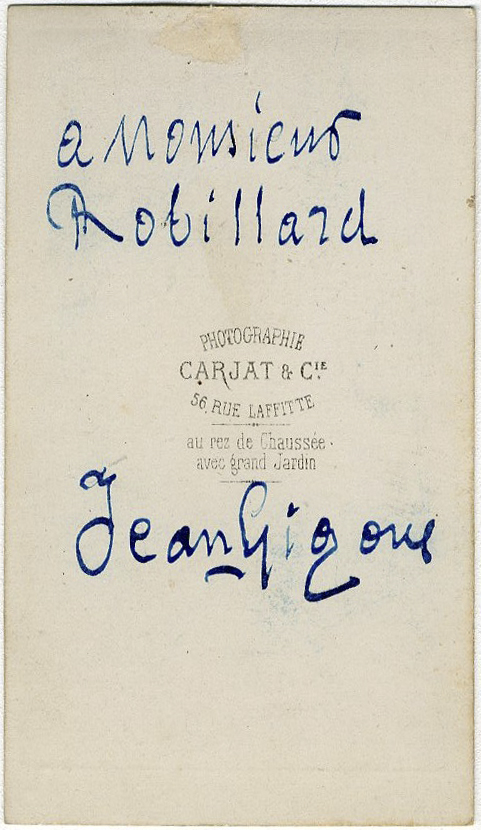 a Monsieur
Robillard
PHOTOGRAPHIE
CARJAT & CIE.
56, RUE LAFFITTE
au rez de Chaussée.
avec grand Jardin
Jean Gigoux